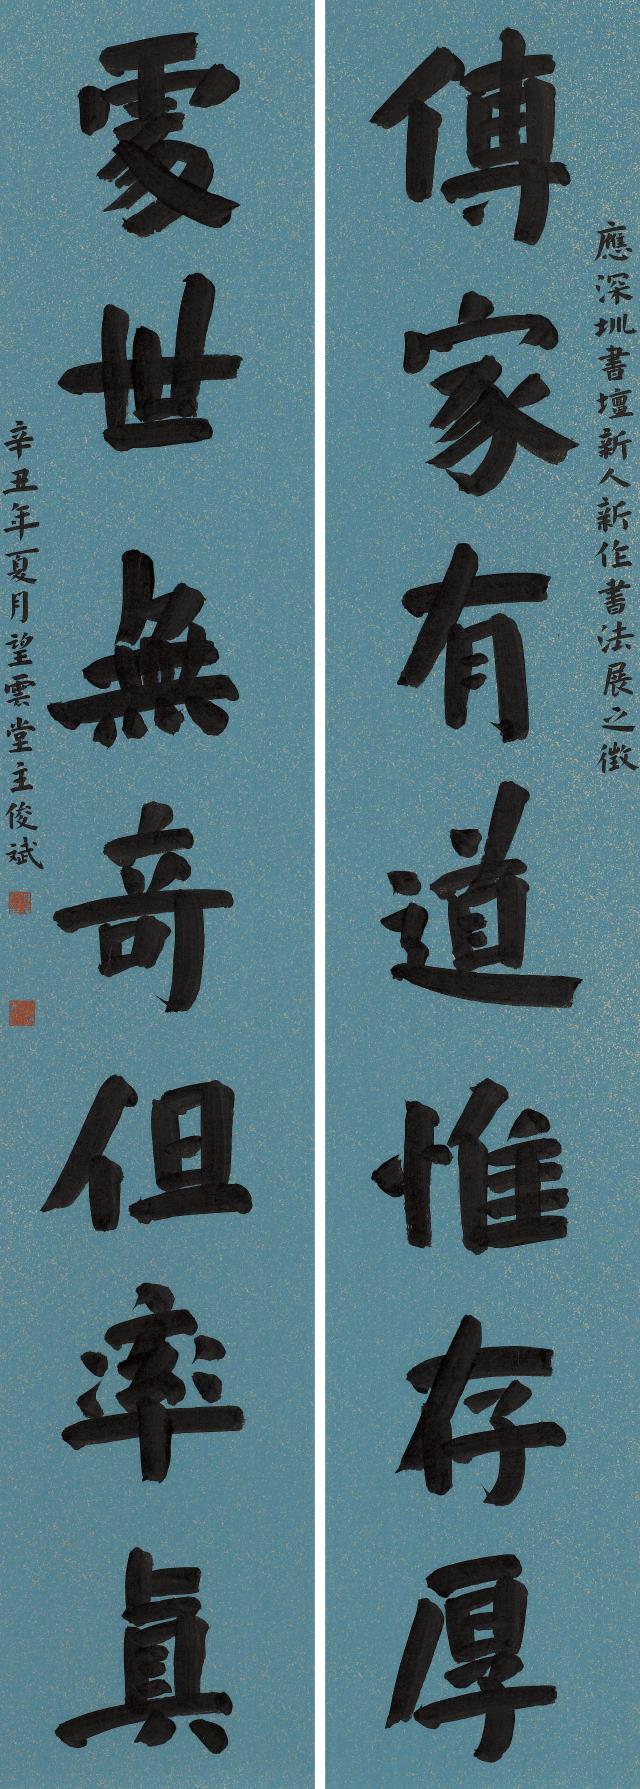 應深圳書壇新人新作書法展之徵
傳家有道惟存厚
處世無奇但率真
辛丑年夏月望雲堂主俊斌